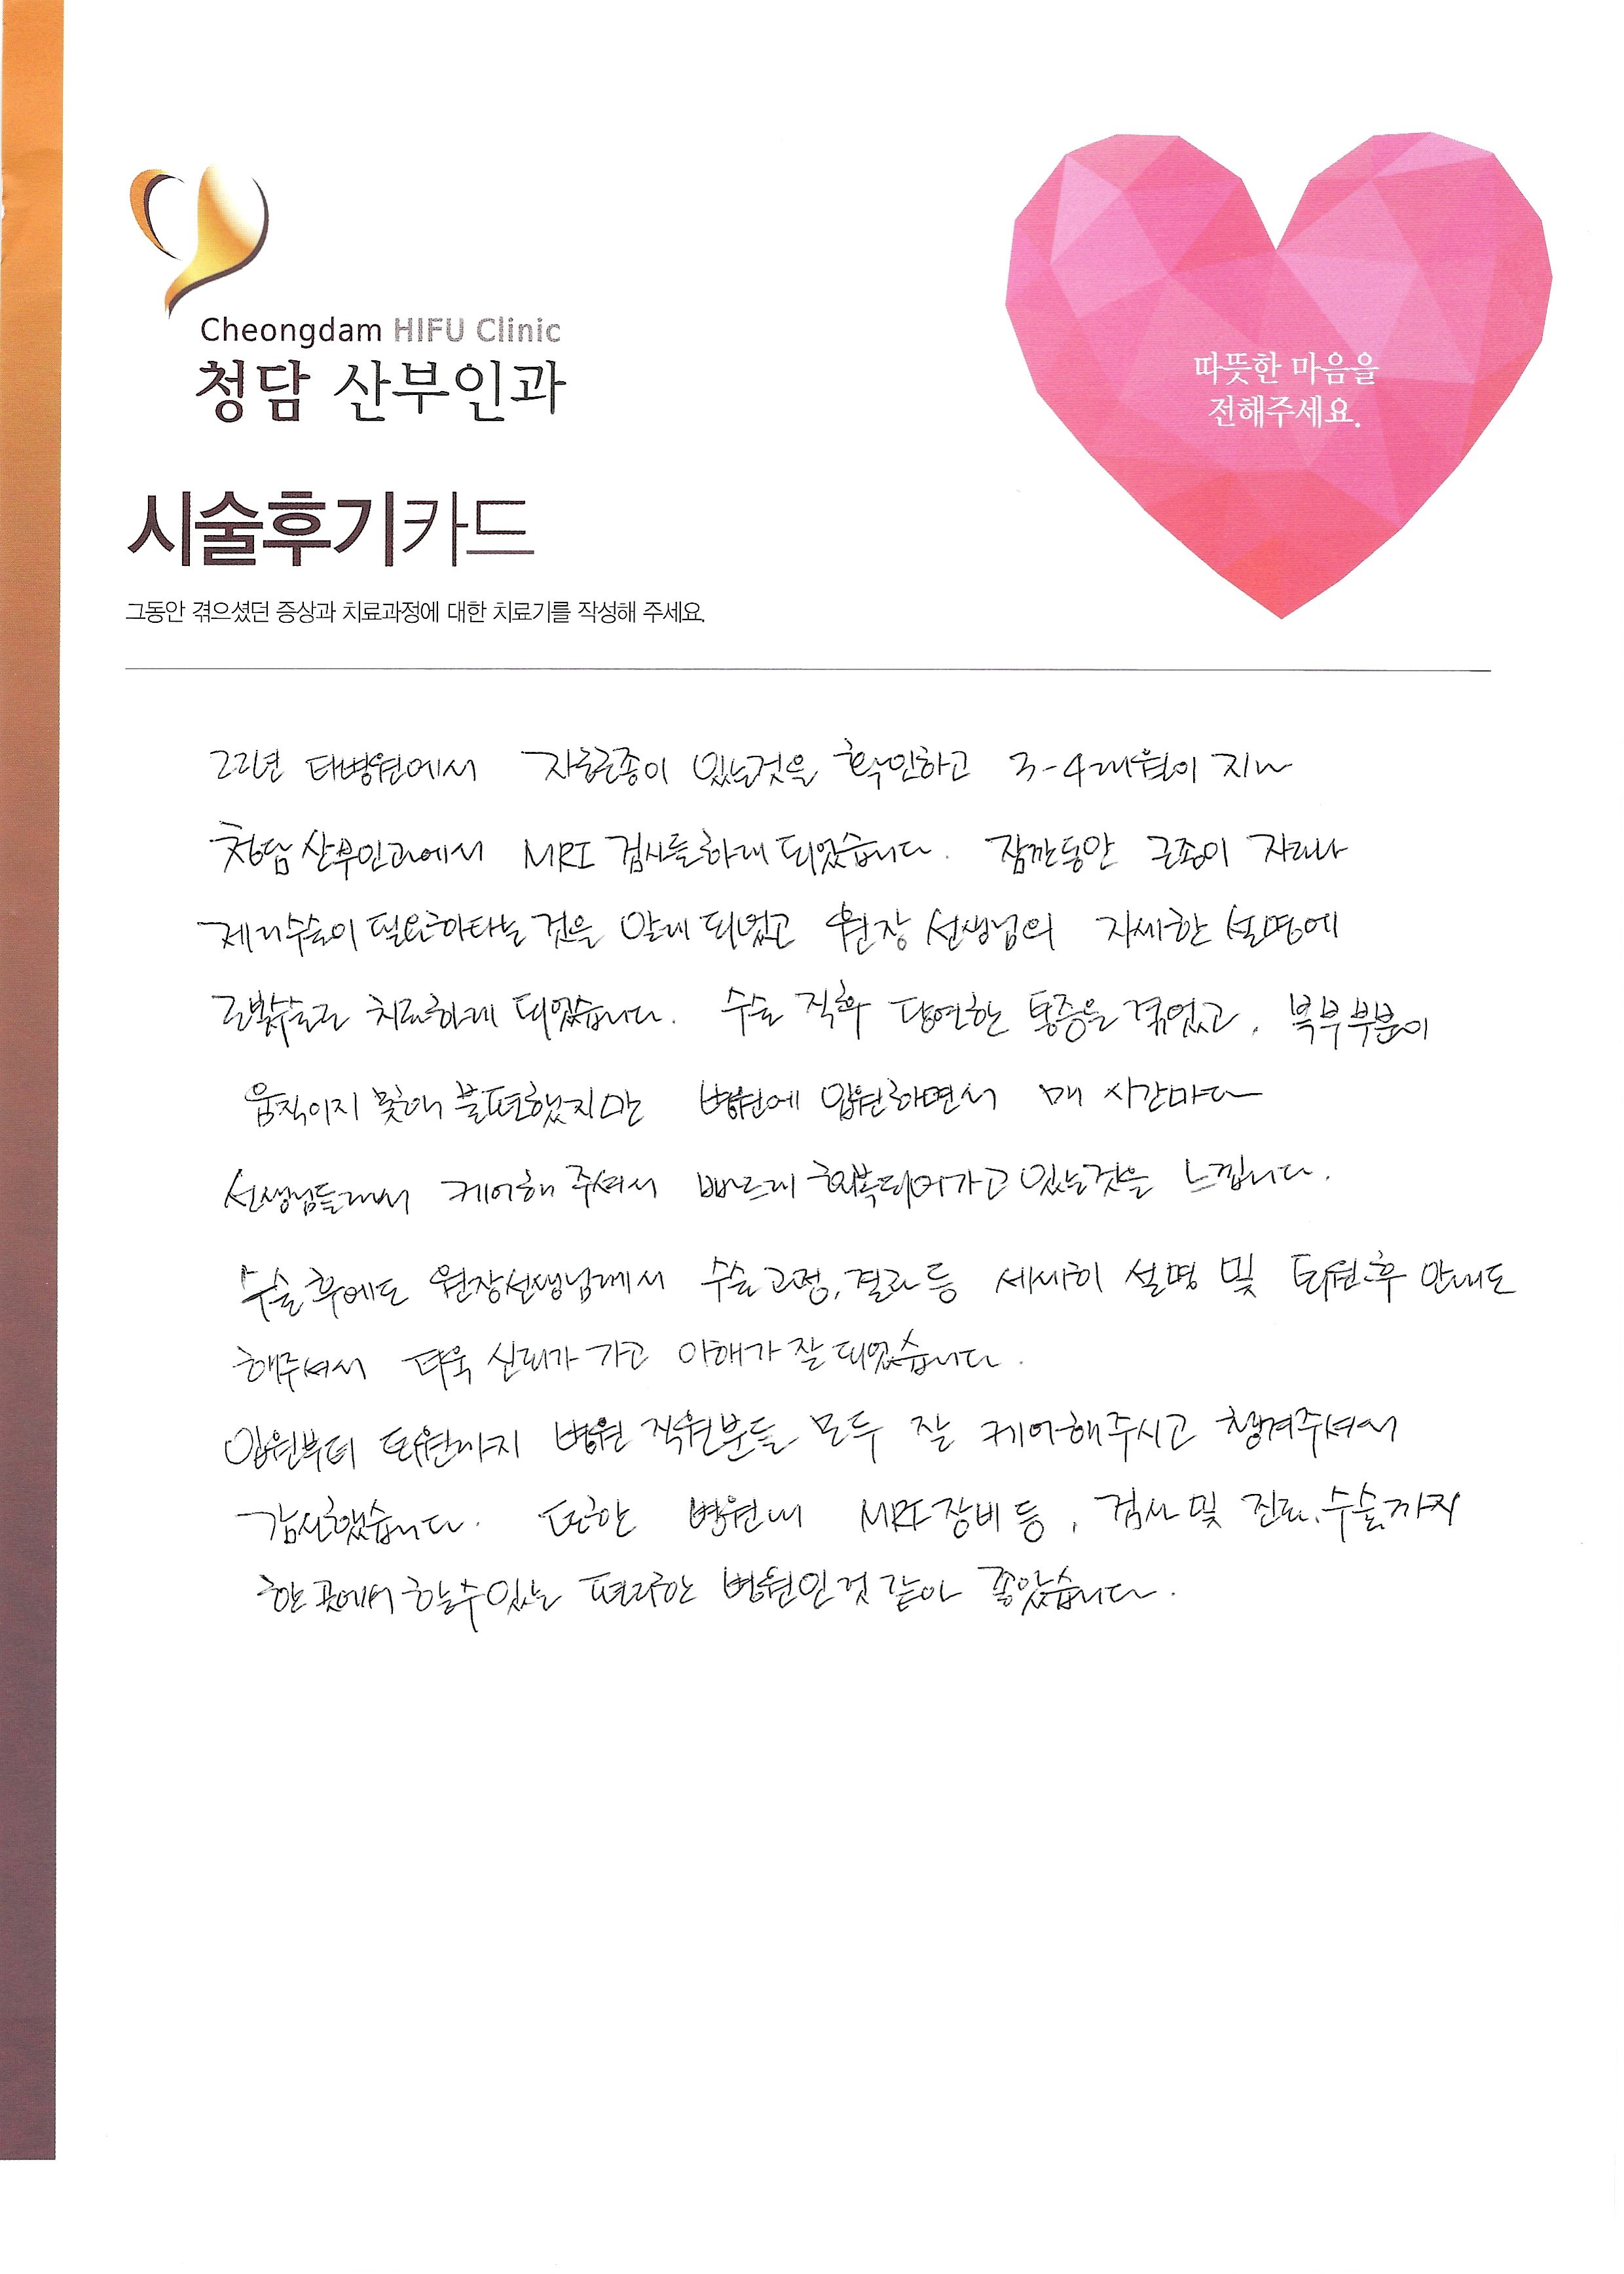 Cheongdam HIFU Clinic
청담 산부인과
따뜻한 마음을
전해주세요.
시술후기카드
그동안 겪으셨던 증상과 치료과정에 대한 치료기를 작성해 주세요.
22년 타병원에서 자궁근종이 있는것을 확인하고 3-4개월이 지나
청담산부인과에서 MRI 검사를하게 되었습니다. 잠깐동안 근종이 자라나
제거수술이 필요하다는 것을 알게 되었고 원장 선생님의 자세한 설명에
치료하게 되었습니다. 수술 직후 당연한 통증을 겪었고, 복부부분이
움직이지 못해 불편했지만 병원에 입원하면서 매 시간마다
선생님들께서 케어해 주셔서 빠르게 회복되어가고 있는것을 느낍니다.
수술 후에도 원장선생님께서 수술과정, 결과 등 세세히 설명 및 퇴원후 안내도
해주셔서 더욱 신뢰가 가고 이해가 잘 되었습니다.
입원부터 퇴원까지 병원 직원분들 모두 잘 케어해주시고 챙겨주셔서
감사했습니다. 또한 병원내 MRI장비 등, 검사 및 진료, 수술까지
한 곳에서 할수있는 편리한 병원인것 같아 좋았습니다.